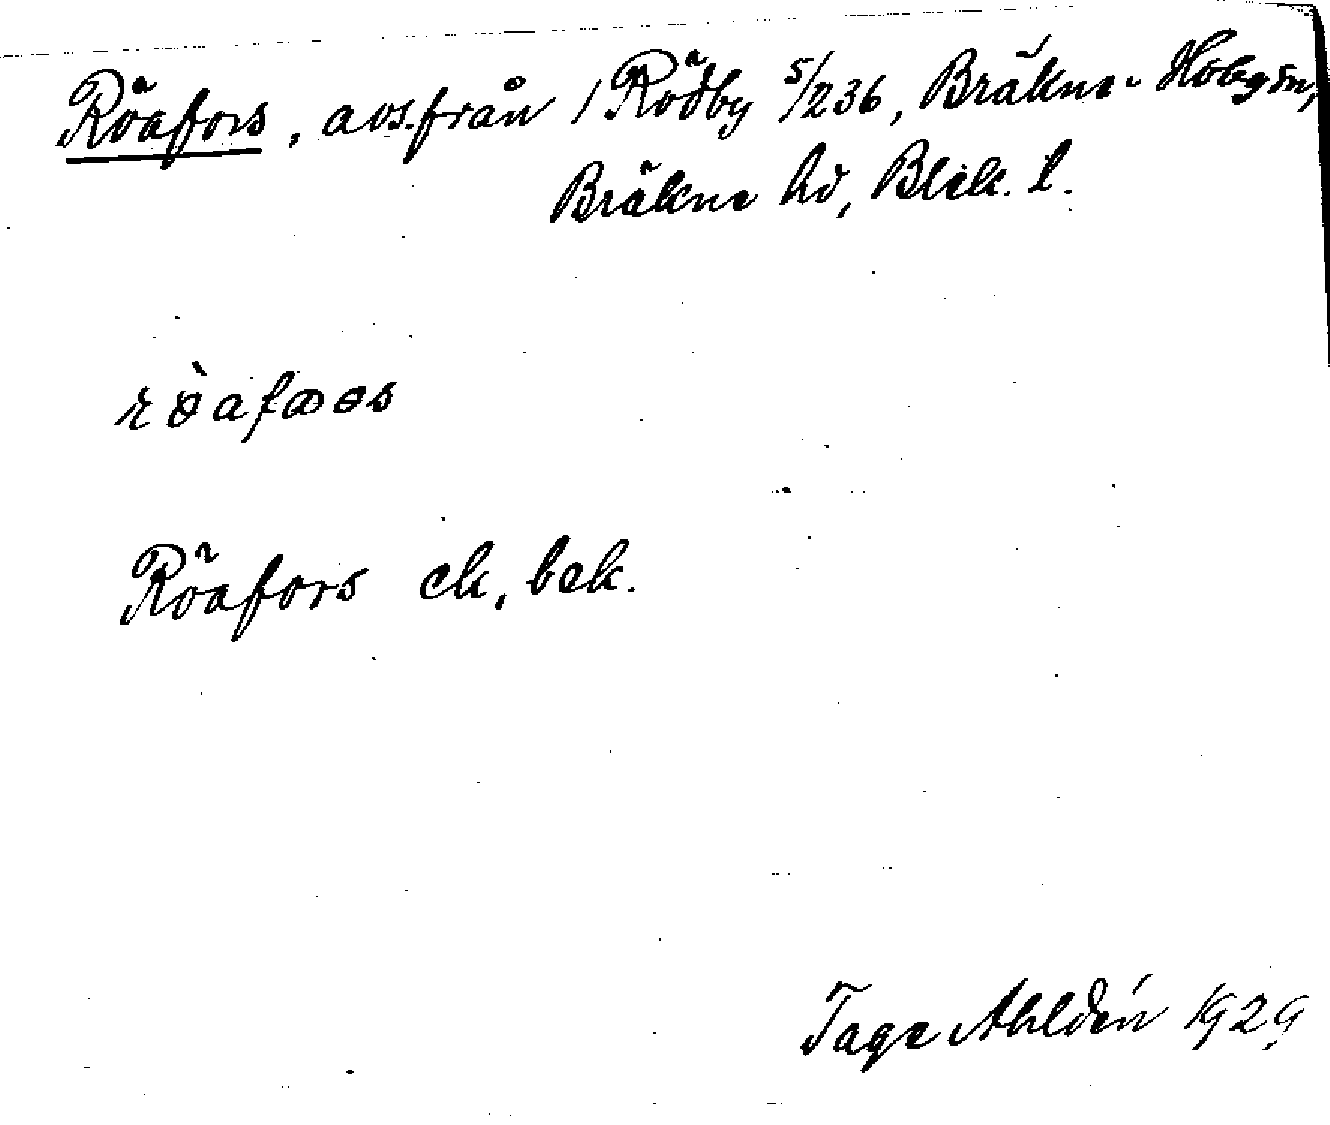 Röafors, avs. från 1 Rödby 5/236, Bräkne-Hoby sn,
Bräkne hd, Blek. l.
röafoss
Röafors ek, bek.
Tage Ahldén 1929